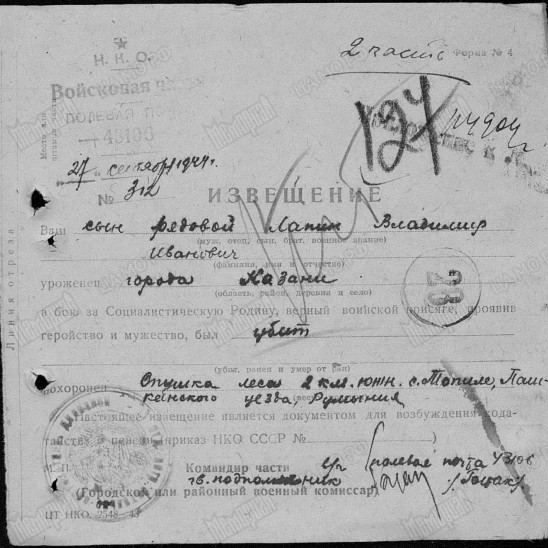 Н. К. О.
Войсковая ча
ПОЛЕВАЯ ПО
43106
27 сентября 1944 г.
№ 32
2 часть Форма № 4
194
ИЗВЕЩЕНИЕ
Ваш сын рядовой Лапин Владимир
(муж, отец, сын, брат, военное звание)
Иванович
(фамилия, имя и отчество)
уроженец города Казани
(область, район, деревня и село)
в бою за Социалистическую Родину, верный воинской присяге, проявив
геройство и мужество, был убит
(убит, ранен и умер от ран)
похоронен Опушка леса 2 км. южн. с. Топиле, Паш-
канского уезда, Румыния
Настоящее извещение является документом для возбуждения хода-
тайства о пенсии (приказ НКО СССР №
М. П. Командир части полевая почта 43106
гв. подполковник
(Городской или районный военный комиссар)
ЦТ НКО. 2548—43
Линия отреза